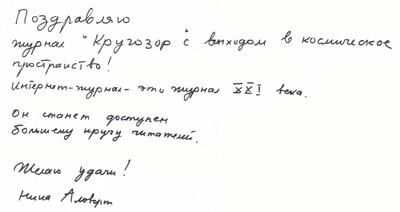 Поздравляю
журнал "Кругозор" с выходом в космическое
пространство!
Интернет-журнал - это журнал XXI века.
Он станет доступен
большему кругу читателей.
Желаю удачи!
Нина Аловерт